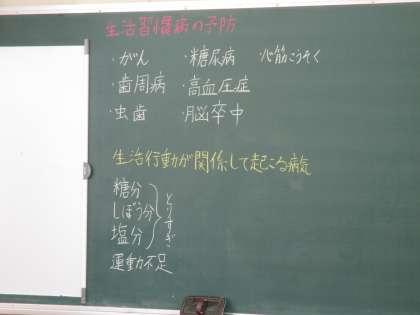 生活習慣病の予防
・がん ・糖尿病 ・心筋こうそく
・歯周病 ・高血圧症
・虫歯 ・脳卒中
生活行動が関係して起こる病気
糖分
しぼう分
塩分
とりすぎ
運動不足